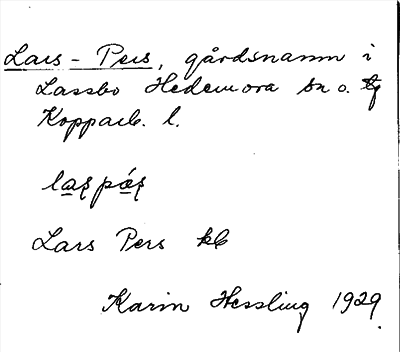 Lars-Pers, gårdsnamn i
Lassbo Hedemora sn o. tg
Kopparb. l.
Lars Pers kb
Karin Hessling 1929.